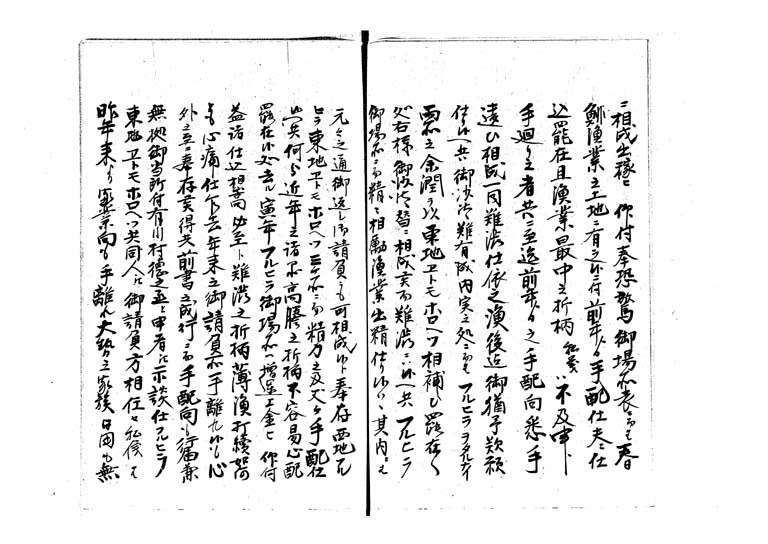 ニ相成出稼ニ 仰付奉恐驚御場所表ニ而も春
鯡漁業之土地ニ有之候ニ付前年より手配仕夫々仕
込罷在且漁業最中之折柄 私義ハ不及申
手廻り之者共ニ至迄前年より之手配向悉手
遠ひ相成一同難渋仕依之漁後迄御猶予歎願
仕候へ共御沙汰難有成内実之処ニ而も フルヒラ
両所之余潤を以東地ヱトモホロヘツ相補ひ罷在候
処右様御沙汰替ニ相成実ニ難渋ニハ候へ共フルヒラ
御場所ニ而精々相励漁業出精仕り候ハヽ其内ニも
元々之通御返し御請負ニも可相成ゆト奉存西地
ヒラ東地ヱトモホロヘツ三ヶ所ニ而精力之及丈ヶ手配仕
候実何分近年之諸品高騰之折柄不容易心配
罷在候処去ル寅年フルヒラ御場所へ増運上金被 仰付
益諸仕込相嵩必至ト難渋之折柄薄漁打続如何
ニも心痛仕乍去年来之御請負所手離れ候も心
外之至ニ奉存候得共前書之成行ニ而手配向も行届兼
無拠御当所付有川村徳之丞と申者に示談仕フルヒラ
東地ヱトモホロヘツ共同人に御請負方相任せ私儀も
昨年来より家業向も手離れ大勢之家族日困も無